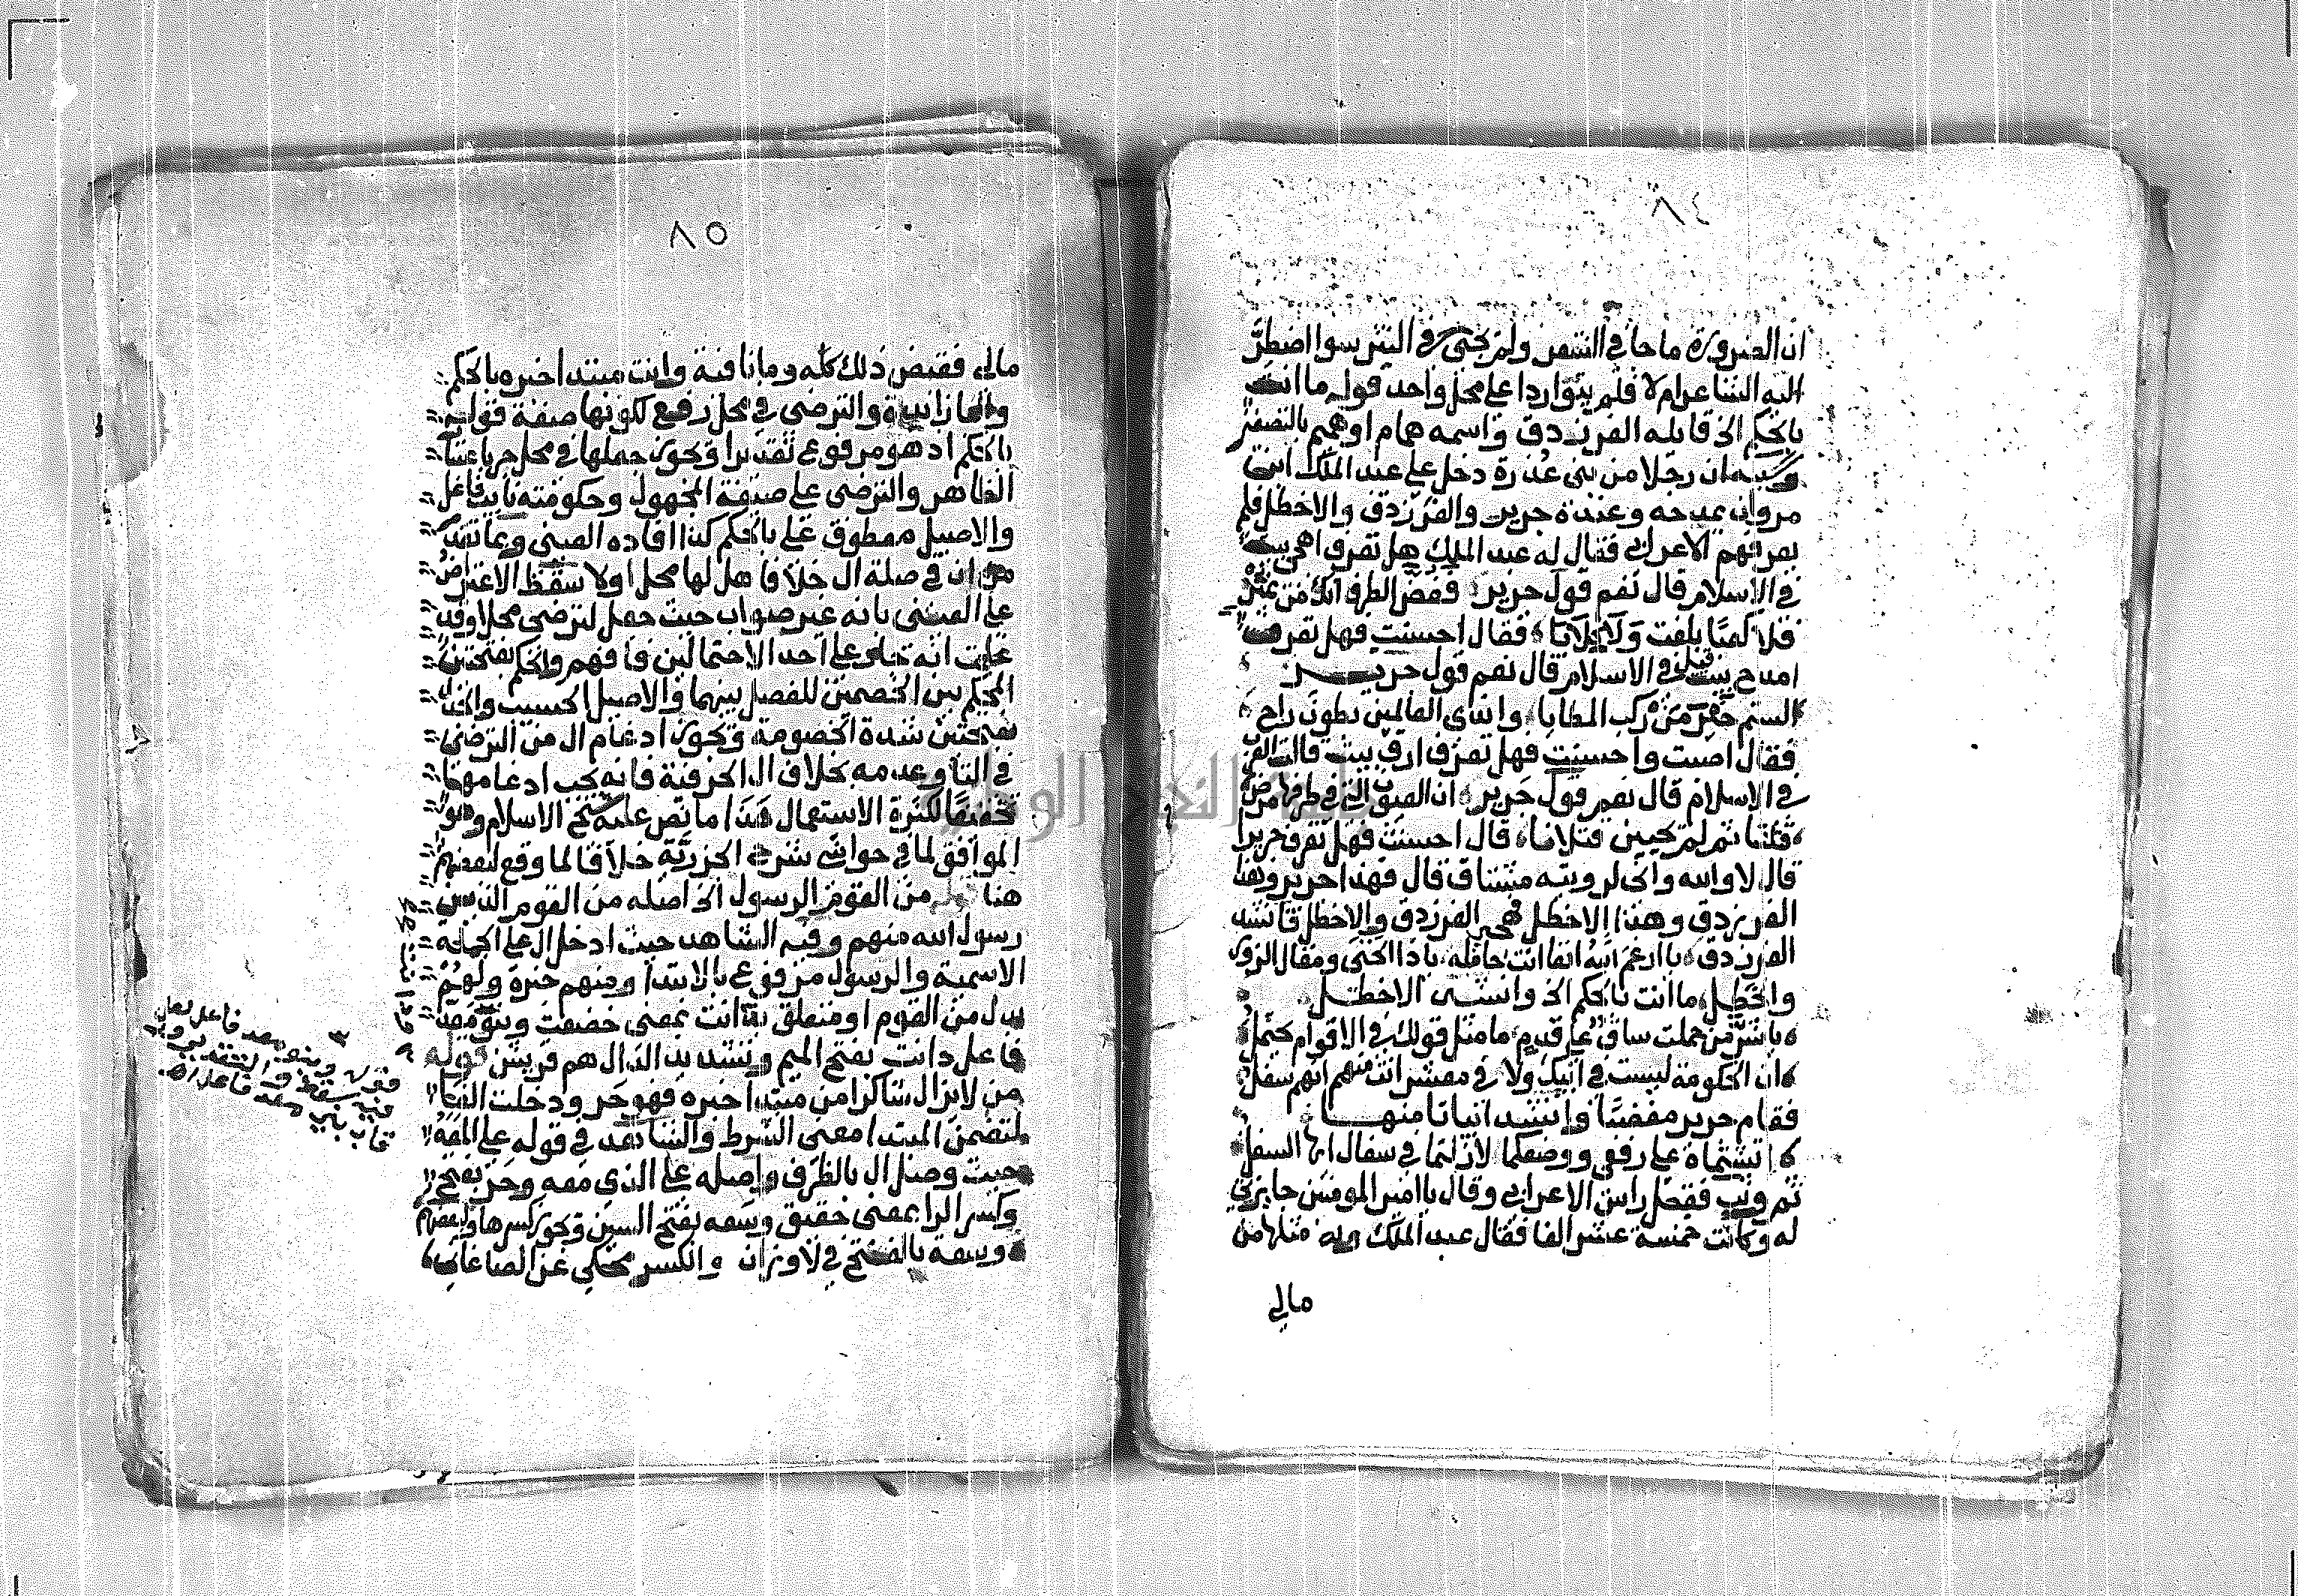 ٨٤
ان الضرورة ماجا في الشعر ولم يجئ في النثر سوا اضطر
اليه الشاعر ام لا فلم يتواردا على محل واحد قوله ما انت
بالحكم الخ قايله الفرزدق واسمه همام او هميم بالتصغير
وسببه ان رجلا من بني عذرة دخل على عبد الملك ابن
مروان يمدحه وعنده جرير والفرزدق والاخطل فلم
يعرفهم الاعرابي فقال له عبد الملك هل تعرف اهجى بيت
في الاسلام قال نعم قول جرير فغض الطرف انك من نمير
فلا كعبا بلغت ولا كلابا فقال احسنت فهل تعرف
امدح بيت قيل في الاسلام قال نعم قول جرير
الستم خير من ركب المطايا واندى العالمين بطون راح
فقال اصبت واحسنت فهل تعرف ارق بيت
في الاسلام قال نعم قول جرير ان العيون التي في طرفها مرض
قتلننا ثم لم يحيين قتلانا قال احسنت فهل تعرف جريرا
قال لا والله واني لرويته مشتاق قال فهذا جرير وهذا
الفرزدق وهذا الاخطل الفرزدق والاخطل فانشد
الفرزدق يا ارغم الله انفا انت حامله ياذا الخنى ومقال الزور
والخطل ما انت بالحكم الخ وانشد الاخطل
يا شر من حملت ساق على قدم ما مثل قولك في الاقوام يحتمل
ان الحكومة ليست في ابيك ولا في معشر انت منهم انهم سفل
فقام جرير مغضبا وانشد ابياتا منها
تشتماه على رفعي ووضعكما لازلتما في سفال ايها السفل
ثم وثب فقبل راس الاعرابي وقال يا امير المومنين جايزتي
له وكانت خمسة عشر الفا فقال عبد الملك وله مثلها من
مالي
٨٥
مالي فقبض ذلك كله وما نافية وانت مبتدا خبره بالحكم
والبا زايدة والترضى في محل رفع لكونها صفة
بالحكم اذ هو مرفوع تقديرا ويجوز جعلها في محل جر باعتبار
الظاهر والترضى على صيغة المجهول وحكومته نايب فاعل
والاصيل معطوف على بالحكم كذا افاده العيني وبما تقدم
من ان في صلة ال خلافا هل لها محل اولا سقط الاعتراض
على العيني بانه غير صواب حيث جعل لترضى محلا وقد
علمت انه جار على احد الاحتمالين فافهم والحكم بفتحتين
المحكم بين الخصمين للفصل بينهما والاصيل الحسيب والجدل
بفتحتين شدة الخصومة ويجوز ادغام ال من الترضى
في التا وعدمه بخلاف ال الحرفية فانه يجب ادغامها
تخفيفا لكثرة الاستعمال هذا ما نص عليه شيخ الاسلام وهو
الموافق لما في حواشي شرح الجزرية خلافا لما وقع لبعضهم
هنا قوله من القوم الرسول الخ اصله من القوم الذين
رسول الله منهم وفيه الشاهد حيث ادخل ال على الجملة
الاسمية والرسول مرفوع بالابتدا ومنهم خبره ولهم
بدل من القوم او متعلق بدانت بمعنى خضعت وبنو معد
فاعل دانت بفتح الميم وتشديد الدال هم قريش قوله
من لا يزال شاكرا من مبتدا خبره فهو حر ودخلت الفا
لتضمن المبتدا معنى الشرط والشاهد في قوله على المعه
حيث وصل ال بالظرف واصله على الذي معه وحر بفتح
وكسر الرا بمعنى حقيق وسعه بفتح السين ويجوز كسرها
وسعة بالفتح في الاوزان والكسر محكي عن الصاغاني